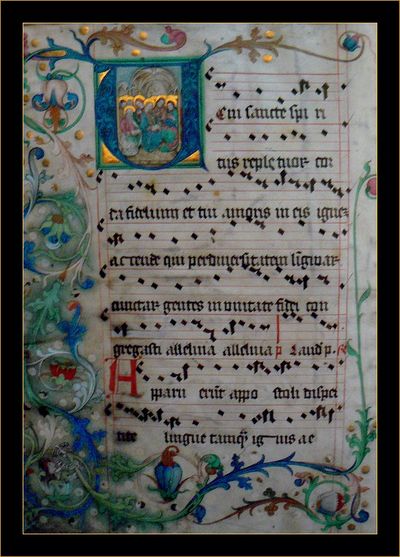 Veni sancte spi ri
tus reple tuor cor
da fidelium et tui amoris in eis igne
accende qui per diversitatem lingwar
cunctar gentes in unitate fidei con
gregasti alleluia alleluia p Laud p
Apparu erut appo stoli disper
tite lingue tamq ig nis ae